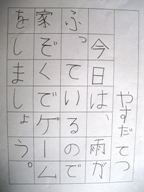 やすだてつ
今日は、雨が
ふっているので
家ぞくでゲーム
をしましょう。